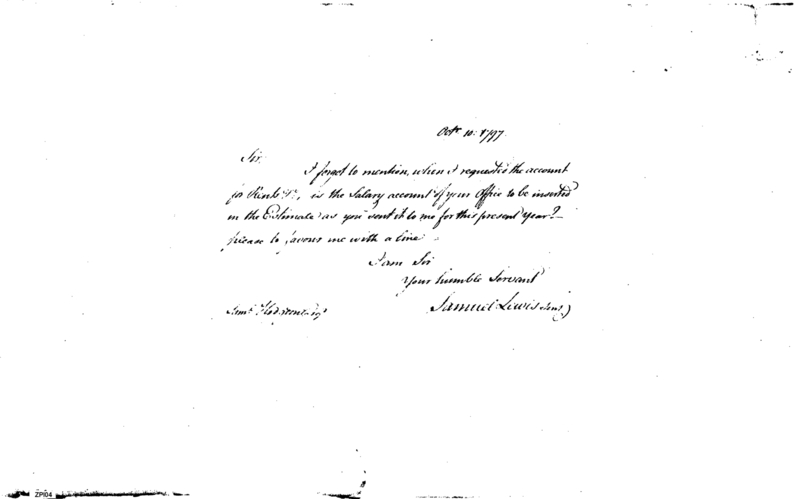 Octr. 10: 1797.
Sir.
I forgot to mention, when I requested the account
for Rents &c, is the Salary account of your Office to be inserted
in the Estimate as you sent it to me for this present Year?
please to favour me with a line
I am Sir
Your humble Servant
Saml. Hodgdon Esqr
Samuel Lewis Senr.)
ZPI04